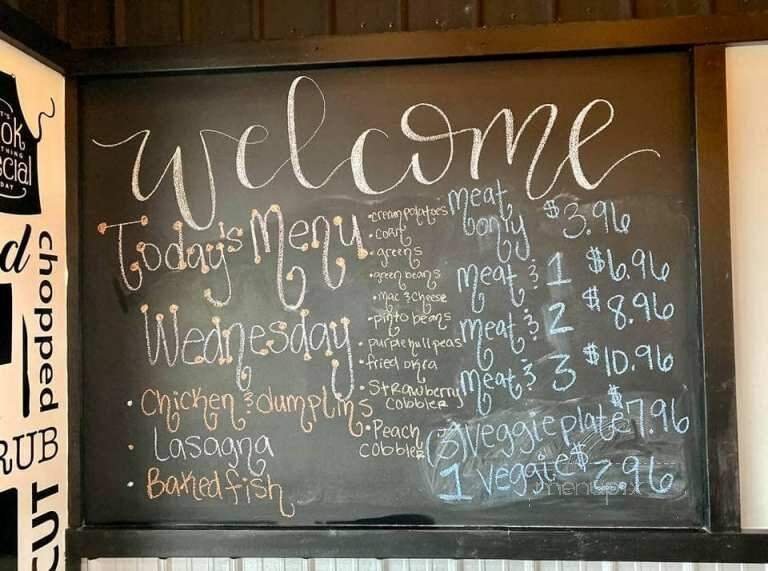 welcome
Today's Menu
Wednesday
• Chicken & dumplins
• Lasagna
• Baked fish
• cream potatoes
• corn
• greens
• green beans
• mac & cheese
• pinto beans
• purple hull peas
• fried okra
• Strawberry
cobbler
• Peach
cobbler
meat
only $3.96
meat & 1 $6.96
meat & 2 $8.96
meat & 3 $10.96
(3) veggie plate $7.96
1 veggie $2.96
menupix
ok
THING
ecial
DAY
d
chopped
RUB
CUT